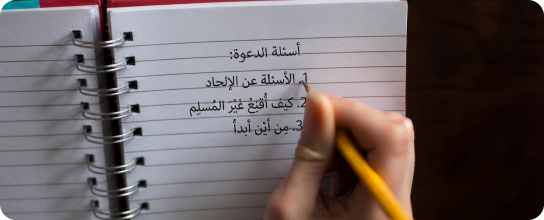 أسئلة الدعوة:
1. الأسئلة عن الإلحاد
2. كيف أُقنِعُ غَيْرَ المُسلِم
3. مِن أيْن أبدأ